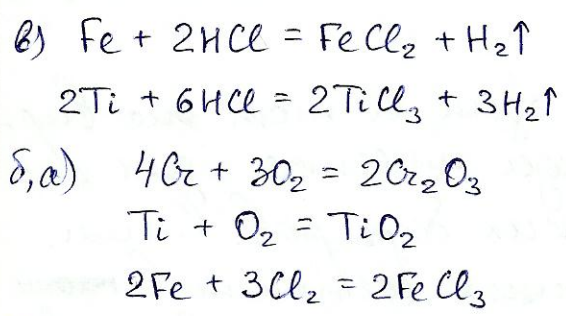 в) Fe + 2HCl = FeCl₂ + H₂↑
2Ti + 6HCl = 2TiCl₃ + 3H₂↑
б,а) 4Cr + 3O₂ = 2Cr₂O₃
Ti + O₂ = TiO₂
2Fe + 3Cl₂ = 2FeCl₃